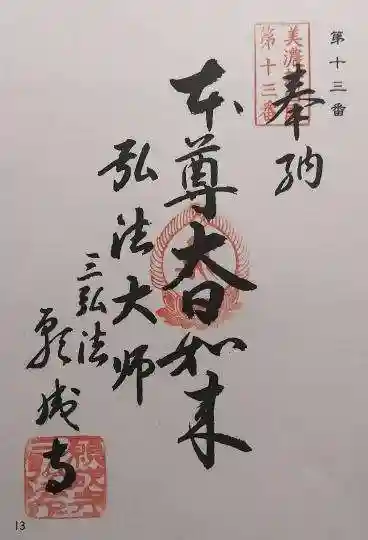 第十三番
美濃
第十三番
奉納
本尊大日如来
弘法大师
三弘法
寺
13